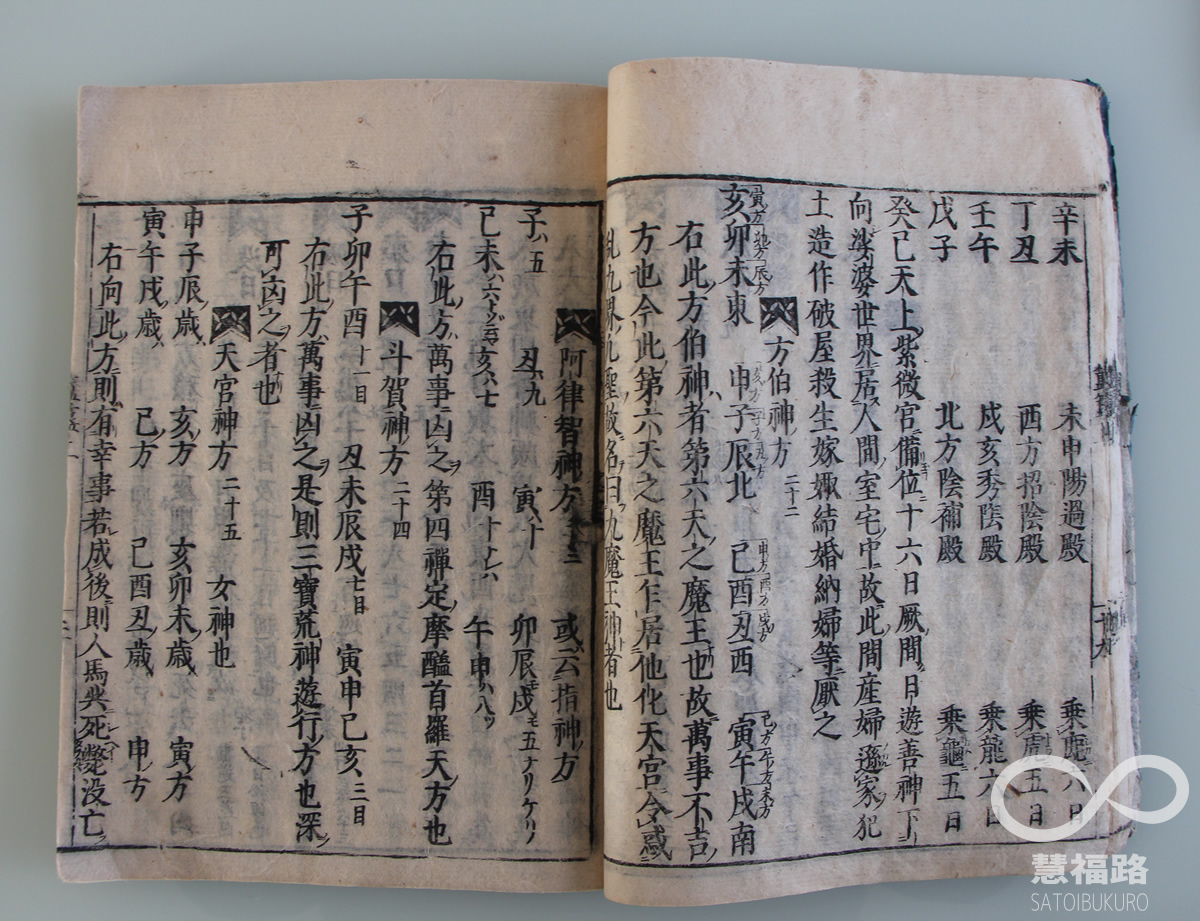 辛未 未申陽過殿 乗鹿六日
丁丑 酉方招陰殿 乗虎五日
壬午 戌亥秀陰殿 乗龍六日
戊子 北方陰補殿 乗龜五日
癸巳天上紫微宮備位十六日厥間日遊善神下
向娑婆世界居人間室宅中故此間産婦遜家犯
土造作破屋殺生嫁娵結婚納婦等厭之
方伯神方 二十二
亥卯未東 申子辰北 巳酉丑西 寅午戌南
右此方伯神者第六天之魔王也故萬事不吉
方也今此第六天之魔王乍居他化天宮令惑
乱九界九聖故名曰九魔王神者也
阿律智神方 二十三 或云指神方
子ハ五 丑ハ九 寅ハ十 卯辰戌モ五ナリケリ
巳未ハ六トゾ 亥ハ七 酉十ナレハ 午申ハ八ツ
右此方萬事凶之第四禪定摩醯首羅天方也
斗賀神方 二十四
子卯午酉 十一目 丑未辰戌 七目 寅申巳亥 三目
右此方萬事凶之是則三寶荒神遊行方也深
可凶之者也
天官神方 二十五 女神也
申子辰歳 亥方 亥卯未歳 寅方
寅午戌歳 巳方 巳酉丑歳 申方
右向此方則有幸事若成後則人馬共死斃没亡
慧福路
SATOIBUKURO